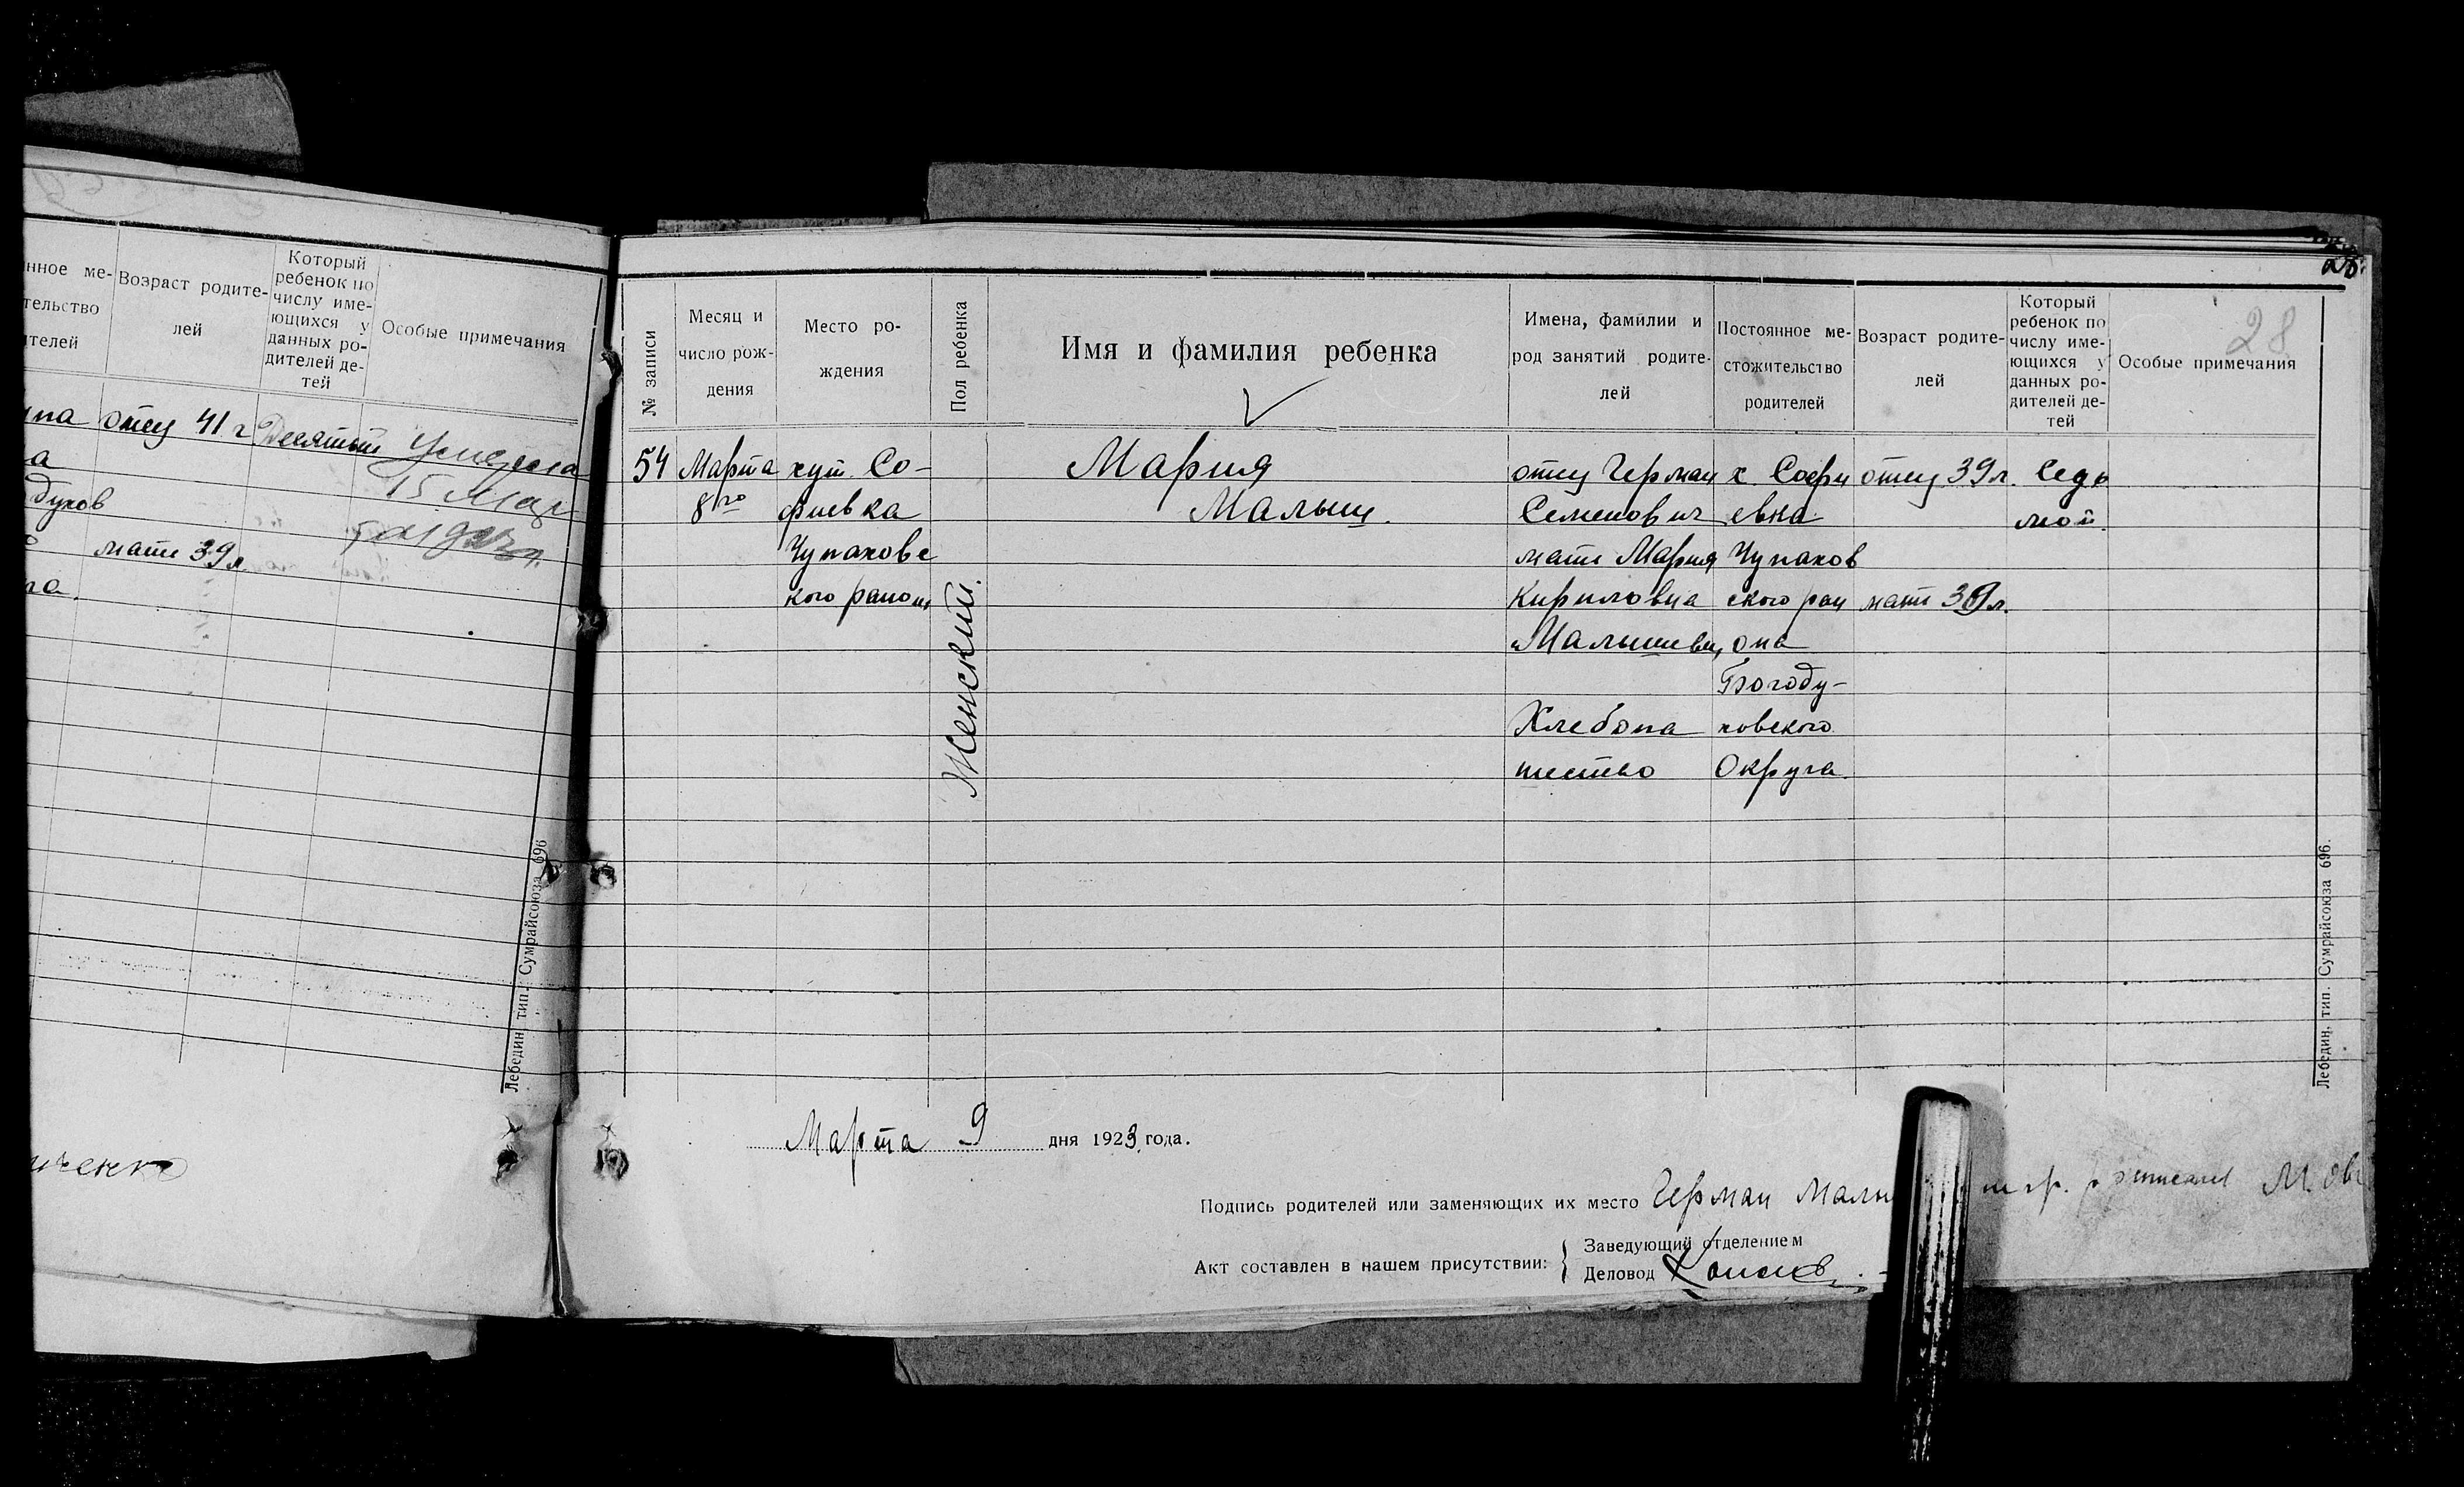 нное ме-
тельство
ителей
Возраст родите-
лей
Который
ребенок по
числу име-
ющихся у
данных ро-
дителей де-
тей
Особые примечания
отец 41 г.
Десятый
15
духов
мати 39 л.
Лебедин. тип. Сумрайсоюза 696
28
№ записи
Месяц и
число рож-
дения
Место ро-
ждения
Пол ребенка
Имя и фамилия ребенка
Имена, фамилии и
род занятий родите-
лей
Постоянное ме-
стожительство
родителей
Возраст родите-
лей
Который
ребенок по
числу име-
ющихся у
данных ро-
дителей де-
тей
Особые примечания
28
54
Марта
8го
хут. Со-
фиевка
Чупаховс
кого района
Женский.
Мария
Малыш.
отец Герман
Семенович
мати Мария
Кириловна
Малышевы,
Хлебопа
шество
х. Софи
евка
Чупахов
ского рай
она
Богоду-
ховского
Округа.
отец 39 л.
мати 39 л.
Седь
мой.
Лебедин. тип. Сумрайсоюза 696.
Марта 9 дня 1923 года.
Подпись родителей или заменяющих их место Герман Малы
Акт составлен в нашем присутствии:
Заведующий отделением
Деловод